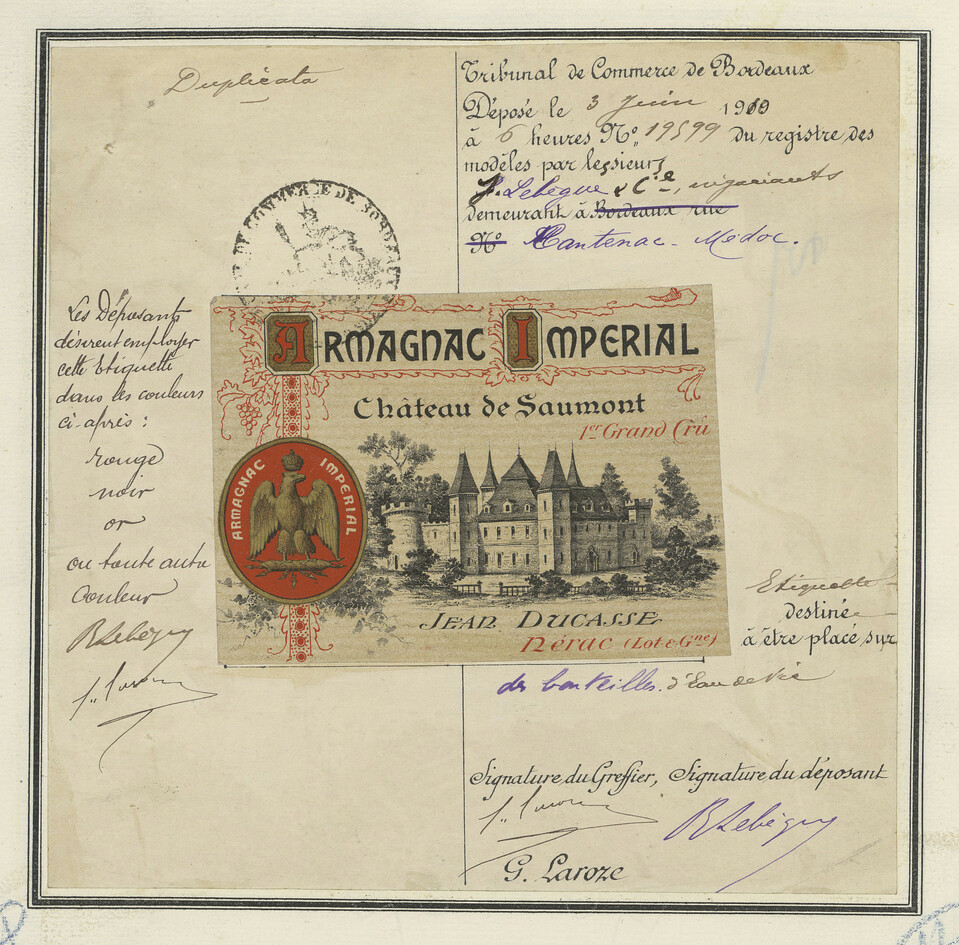 Duplicata
Tribunal de Commerce de Bordeaux
Déposé le 3 Juin 1910
à 6 heures No. 19599 du registre des
modèles par les sieurs
J. Lebègue & Cie, négociants
demeurant à Bordeaux rue
No Cantenac - Médoc.
DE COMMERCE DE BORDEAUX
Les Déposants
désirent employer
cette Etiquette
dans les couleurs
ci-après :
rouge
noir
or
ou toute autre
Couleur
R Lebègue
ARMAGNAC IMPERIAL
Château de Saumont
1er Grand Crû
ARMAGNAC IMPERIAL
JEAN DUCASSE
Nérac (Lot & Gne)
Etiquette
destinée
à être placé sur
des bouteilles d'Eau de Vie
Signature du Greffier, Signature du déposant
R Lebègue
G. Laroze